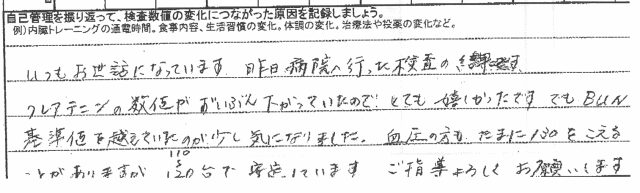 自己管理を振り返って、検査数値の変化につながった原因を記録しましょう。
例)内臓トレーニングの通電時間。食事内容、生活習慣の変化。体調の変化。治療法や投薬の変化など。
いつもお世話になっています 昨日病院へ行った検査の結果です
クレアチニンの数値がずいぶん下がっていたので とても嬉しかったです でもBUN
基準値を越えていたのが少し気になりました。血圧の方も たまに130をこえる
ことがありますが 110〜120台で安定しています ご指導よろしくお願いします